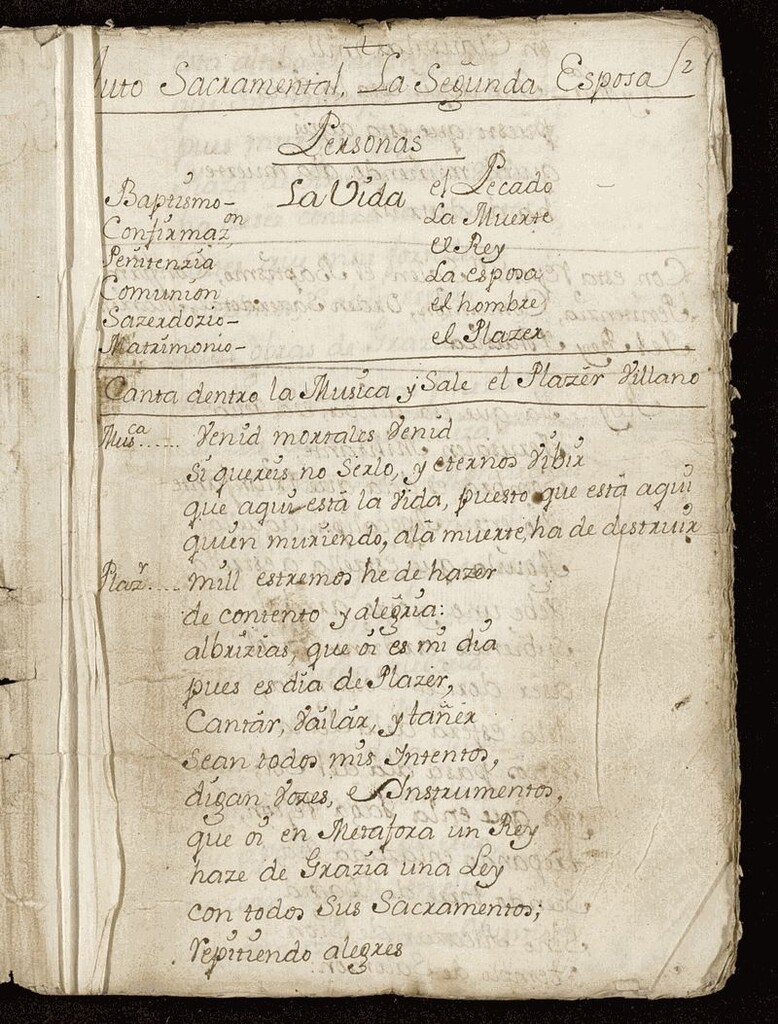 Auto Sacramental, La Segunda Esposa 2
Personas
Baptismo- La Vida el Pecado
Confirmazon La Muerte
Penitenzia el Rey
Comunion La esposa
Sazerdozio- el hombre
Matrimonio- el Plazer
Canta dentro la Musica y Sale el Plazer Villano
Musca...... Venid mortales Venid
Si quereis no Serlo, y eternos Vibir
que aqui está la Vida, puesto que está aqui
quien muriendo, alá muerte, ha de destruir
Plazr.... mill estremos he de hazer
de contento y alegria:
albrizias, que oi es mi dia
pues es dia de Plazer,
Cantar, Vailar, y tañer
Sean todos mis Intentos,
digan Vozes, e Instrumentos,
que oi en Metafora un Rey
haze de Grazia una Ley
con todos Sus Sacramentos;
repitiendo alegres